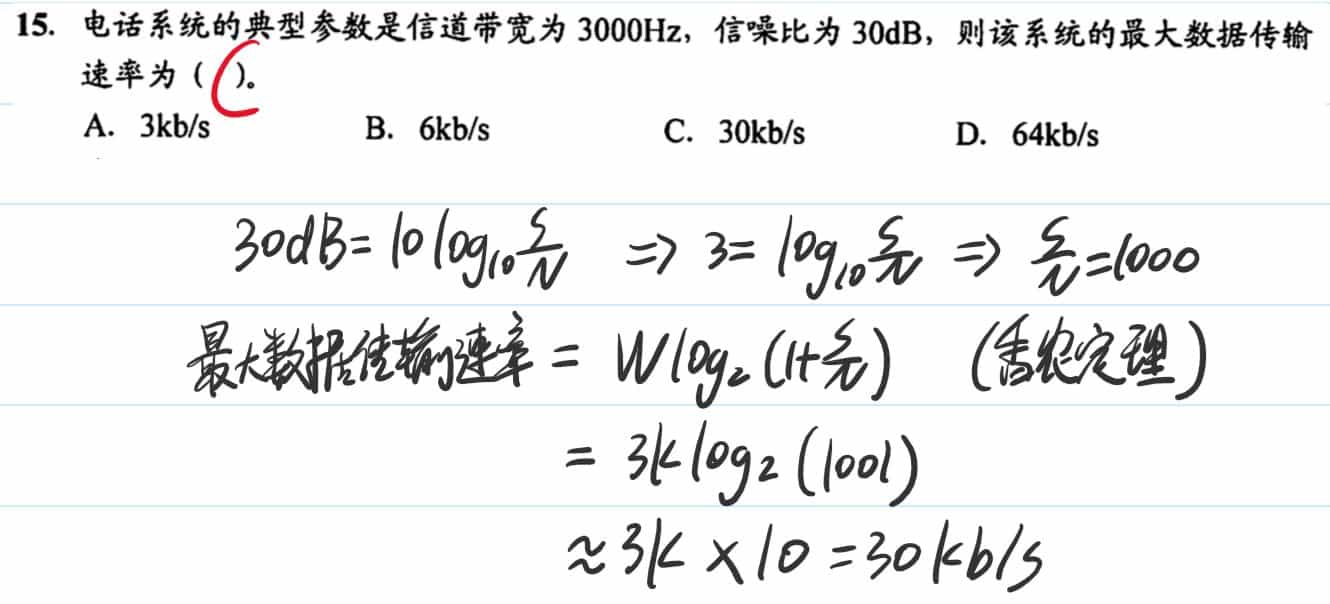 15. 电话系统的典型参数是信道带宽为 3000Hz，信噪比为 30dB，则该系统的最大数据传输
速率为（C）。
A. 3kb/s B. 6kb/s C. 30kb/s D. 64kb/s
30dB = 10 log₁₀ S/N ⇒ 3 = log₁₀ S/N ⇒ S/N = 1000
最大数据传输速率 = W log₂ (1+S/N) (香农定理)
= 3k log₂ (1001)
≈ 3k × 10 = 30kb/s